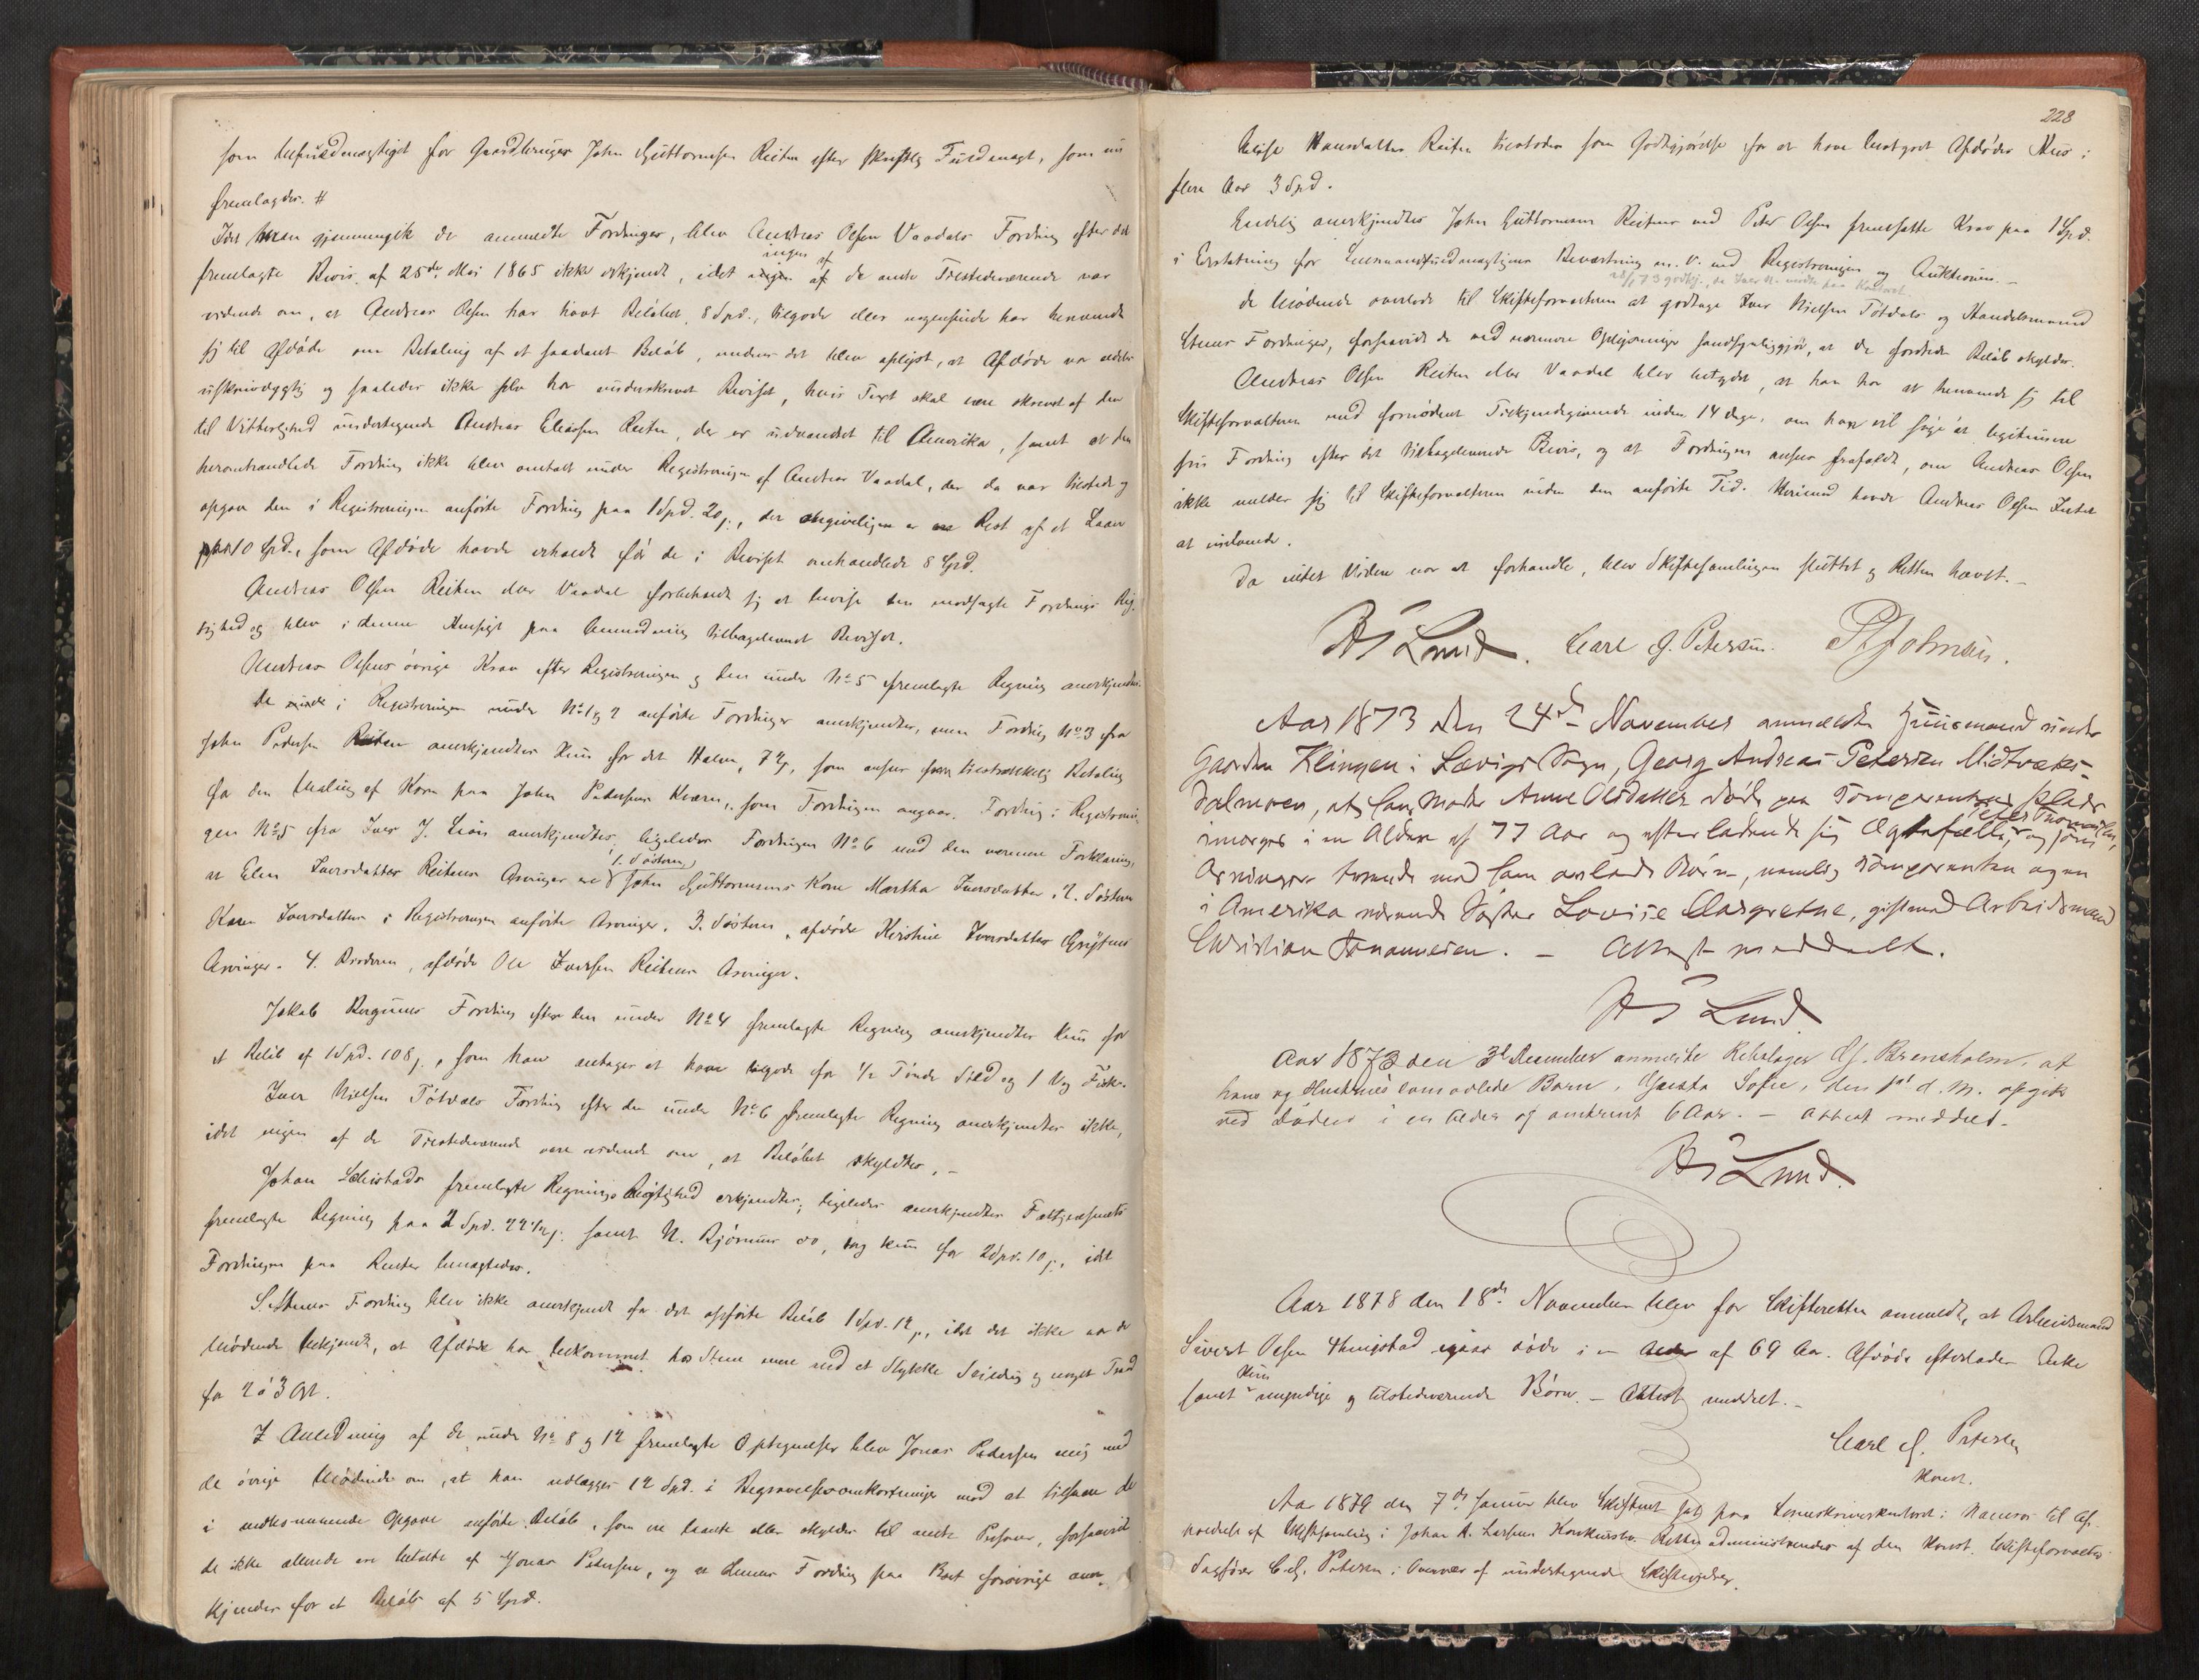 som befuldmægtiget for Gaardbruger John Guttormsen Reiten efter skriftlig Fuldmagt, som nu
fremlagdes. #
Idet man gjennemgik de anmeldte Fordringer, blev Andreas Olsen Vaadals Fordring efter det
ingen af
fremlagte Bevis af 25de Mai 1865 ikke erkjendt, idet ingen af de andre Tilstedeværende var
vidende om, at Andreas Olsen har havt Beløbet, 8 Spd., tilgode eller nogensinde har henvendt
sig til Afdøde om Betaling af et saadant Beløb, medens det blev oplyst, at Afdøde var
uskrivekyndig og saaledes ikke selv har underskrevet Beviset, hvis Text skal være skrevet af den
til Vitterlighed undertegnede Andreas Eliassen Reiten, der er udvandret til Amerika, samt at den
heromhandlede Fordring ikke blev omtalt under Registreringen af Andreas Vaadal, der da var tilstede og
opgav den i Registreringen anførte Fordring paa 1 Spd. 20 s., der angiveligen er Rest af et Laan
paa 10 Spd., som Afdøde havde erholdt før de i Beviset omhandlede 8 Spd.
Andreas Olsen Reiten eller Vaadal forbeholdt sig at bevise den modsagte Fordrings Rig-
tighed og blev i denne Hensigt paa Anmodning tilbageleveret Beviset.
Andreas Olsens øvrige Krav efter Registreringen og den under No 5 fremlagte Regning anerkjendtes.
De i Registreringen under No 1 og 2 anførte Fordringer anerkjendtes, men Fordring No 3 fra
John Pedersen Reiten anerkjendtes kun for det Halve, som ansees tilstrækkelig Betaling
for den Maling af Korn paa John Pedersens Kværn, som Fordringen angaar. Fordring i Registrerin-
gen No 5 fra Iver J. Lien anerkjendtes, ligeledes Fordringen No 6 med den nærmere Forklaring,
1. Søsteren,
at Elen Iversdatter Reitens Arvinger ere John Guttormsens Kone Martha Iversdatter, 2. Søsteren
Karen Iversdatters i Registreringen anførte Arvinger. 3. Søsteren, afdøde Kirstine Iversdatter
Arvinger. 4. Broderen, afdøde Ole Iversen Reitens Arvinger.
Jakob Fordring efter den under No 4 fremlagte Regning anerkjendtes kun for
et Beløb af 1 Spd. 108 s., som han antages at have tilgode for 1/2 Tønde Sild og 1 Vog Fisk.
Iver Nielsen Fordring efter den under No 6 fremlagte Regning anerkjendtes ikke,
idet ingen af de Tilstedeværende vare vidende om, at Beløbet skyldtes. –
Johan fremlagte Regnings Rigtighed erkjendtes; ligeledes anerkjendtes Fattigvæsenets
fremlagte Regning paa 2 Spd. samt N. Bjørnes do, dog kun for 2 Spd. 10 s., idet
Fordringen paa Renter benægtedes.
Fordring blev ikke anerkjendt for det opførte Beløb 1 Spd. 12 s., idet det ikke var de
Mødende bekjendt, at Afdøde har bekommet hos Steen mere end et Stykke og noget
for 2 à 3 Ort.
I Anledning af de under No 8 og 12 fremlagte Optegnelser blev Jonas Pedersen enig med
de øvrige Mødende om, at han udlægges 12 Spd. i Begravelsesomkostninger mod at tilsvare de
i vedkommende Opgave anførte Beløb, som ere laante eller skyldes til andre Personer, forsaavidt
de ikke allerede ere betalte af Jonas Pedersen, og at dennes Fordring paa forøvrigt aner-
kjendes for et Beløb af 5 Spd.
228
Hansdatter Reiten tilstodes som Godtgjørelse for at have bestyret Afdødes Hus i
flere Aar 3 Spd.
Endelig anerkjendtes John Guttormsen Reitens ved Peter Olsen fremsatte Krav paa 1 Spd.
i Erstatning for Lensmandsfuldmægtigens Bevertning m. v. ved Registreringen og Auktionen. –
De Mødende overlode til Skifteforvalteren at godtage Iver Nielsen og Handelsmand
Steens Fordringer, forsaavidt de ved nærmere Oplysninger sandsynliggjør, at de fordrede Beløb skyldes.
Andreas Olsen Reiten eller Vaadal blev betydet, at han har at henvende sig til
Skifteforvalteren med fornødent Tilkjendegivende inden 14 Dage, om han vil søge at legitimere
sin Fordring efter det tilbageleverede Bevis, og at Fordringen ansees frafaldt, om Andreas Olsen
ikke melder sig til Skifteforvalteren inden den anførte Tid. Herimod havde Andreas Olsen Intet
at indvende.
Da intet Videre var at forhandle, blev Skiftesamlingen sluttet og Retten hævet. –
HS Lund. Carl J. Petersen.
Aar 1873 den 24de November anmeldte Huusmand under
Gaarden Klingen i Sævigs Sogn, Georg Andreas Petersen Midtvæks-
dalmoen, at hans Moder Anne Olsdatter døde paa Comparentens Plads
imorges i en Alder af 77 Aar og efterladende sig Ægtefælle, og som
Arvinger tvende med ham avlede Børn, nemlig Comparenten og en
i Amerika værende Søster Lovise Margrethe, gift med Arbeidsmand
Christian Johannesen. – Attest meddeelt.
HS Lund
Aar 1873 den 3d December anmeldte Rebslager Brensholm, at
hans og Hustrues samavlede Barn, Sofie, den 1st d. M. afgik
ved Døden i en Alder af omtrent 6 Aar. – Attest meddelt.
HS Lund.
Aar 1878 den 18de November blev for Skifteretten anmeldt, at Arbeidsmand
Sivert Olsen igaar døde i en Alder af 69 Aar. Afdøde efterlader Enke
kun
samt myndige og tilstedeværende Børn. – Attest meddelt. –
Carl J. Petersen
Konst.
Aar 1879 den 7de Januar blev Skifteret sat paa Sorenskriverkontoret i Namsos til Af-
holdelse af Skiftesamling i Johan A. Larsens Konkursbo. Retten administreredes af den Konst. Skifteforvalter
Sagfører C. J. Petersen i Overvær af undertegnede Skiftevidner.